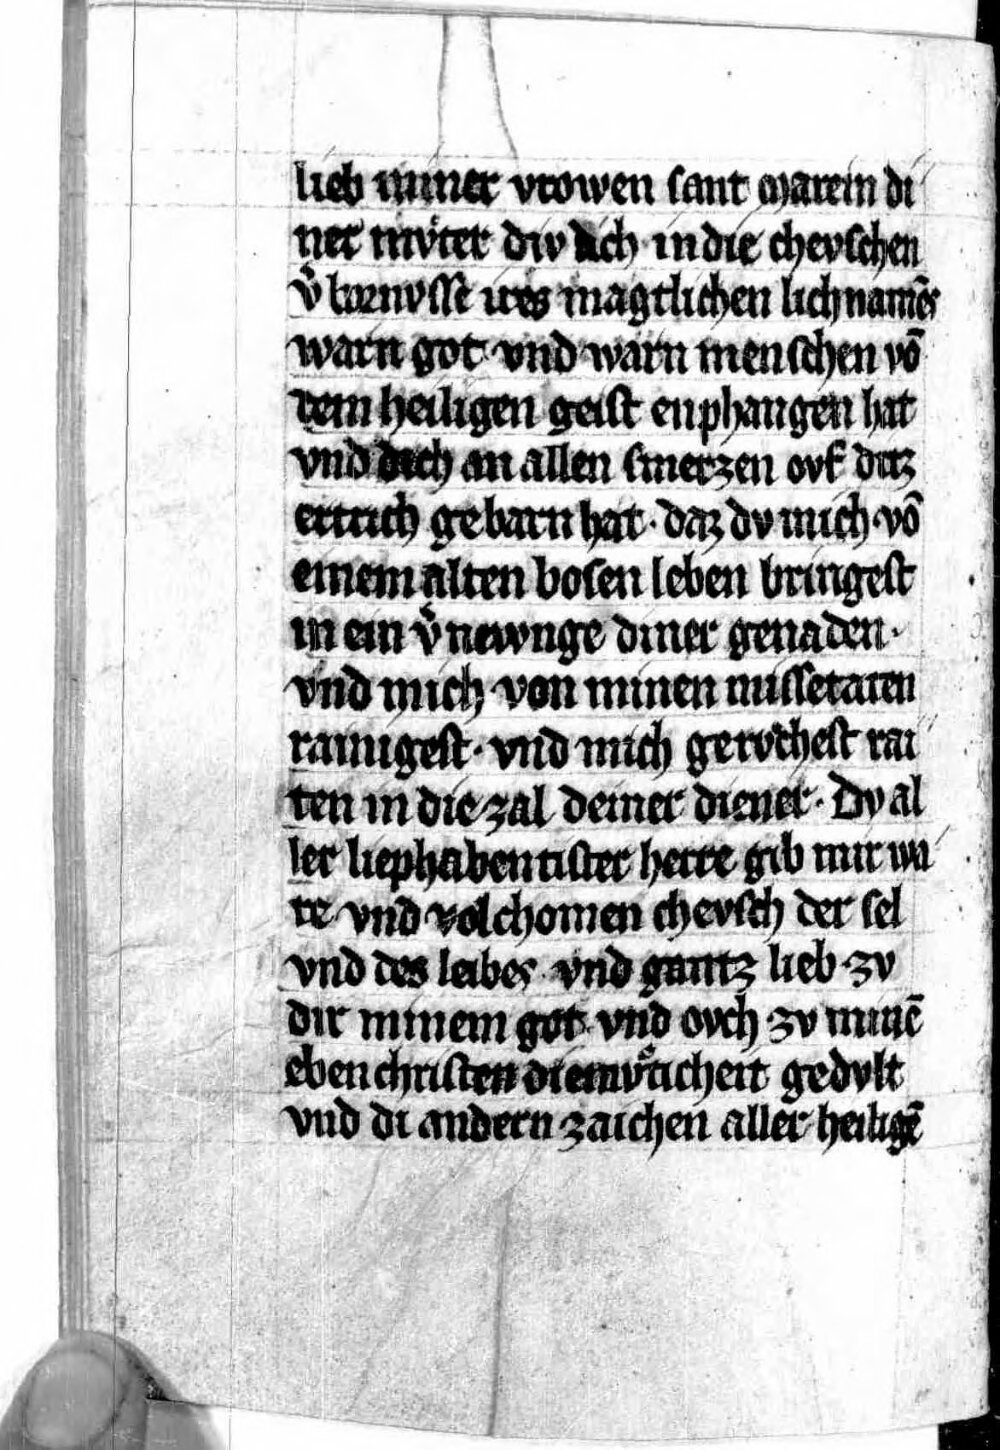 lieb miner vrowen sant Marein di
ner mvͦter div dich in die chevschen
v̓ bornvsse ires magtlichen lichnamēs
warn got vnd warn menschen vō
dem heiligen geist enphangen hat
vnd dich an allen smerzen ovf daz
ertrich gebarn hat · daz dv mich vō
einem alten bosen leben bringest
in ein v̓newnge diner genaden ·
vnd mich von minen missetaten
rainigest · vnd mich gervͦchest rai
ten in die zal deiner diener · Dv al
ler liephabentister herre gib mir wa
re vnd volchomen chevsch der sel
vnd des leibes vnd gantz lieb zv
dir minem got vnd ovch zv minē
eben christen diemvͦticheit gedvlt
vnd di andern zaichen aller heiligē